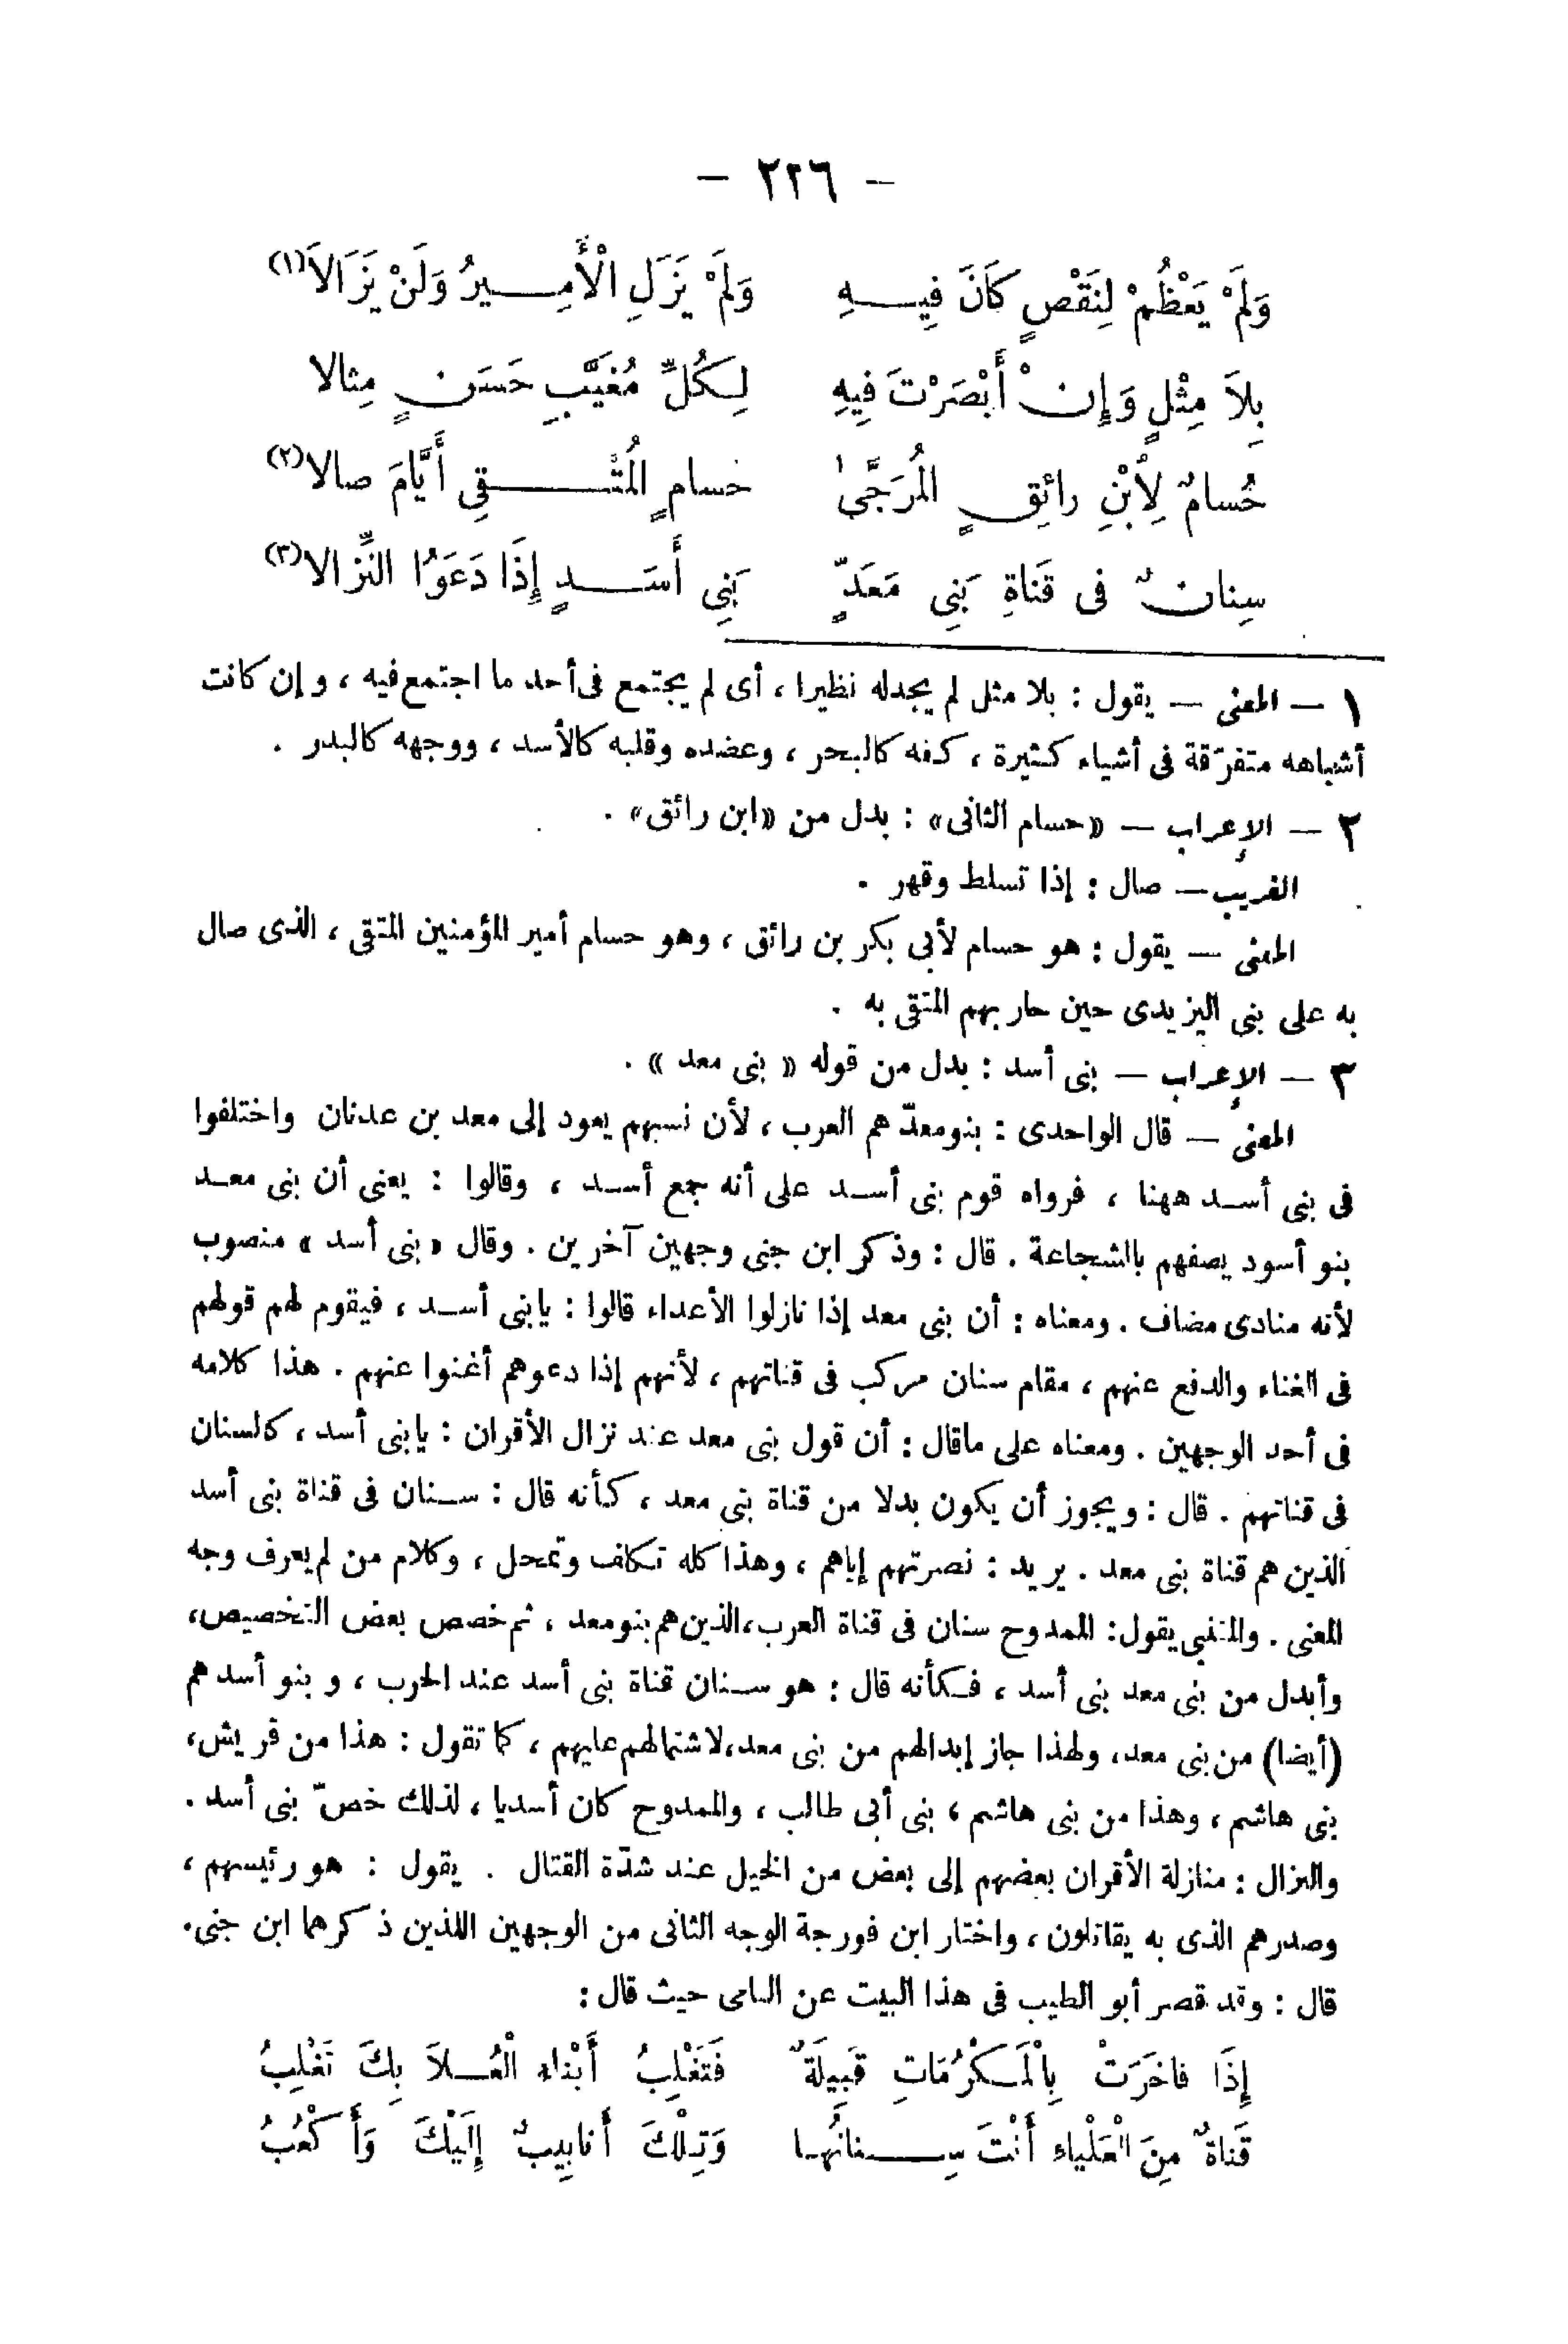 - ٢٢٦ -
وَلَمْ يَعْظُمْ لِنَقْصٍ كَانَ فِيهِ وَلَمْ يَزَلِ الْأَمِيرُ وَلَنْ يَزَالاَ(١)
بِلاَ مِثْلٍ وَإِنْ أَبْصَرْتَ فِيهِ لِكُلِّ مُغَيَّبٍ حَسَنٍ مِثالا
حُسامٌ لِاْبْنِ رائِقٍ المُرَجَّى حُسامِ المُتَّقِي أَيَّامَ صالا(٢)
سِنانٌ فى قَناةِ بَنِي مَعَدٍّ بَنِي أَسَدٍ إِذَا دَعَوُا النِّزالا(٣)
١ — المعنى — يقول : بلا مثل لم يجدله نظيرا ، أى لم يجتمع فى أحد ما اجتمع فيه ، وإن كانت
أشباهه متفرّقة فى أشياء كثيرة ، كفه كالبحر ، وعضده وقلبه كالأسد ، ووجهه كالبدر .
٢ — الإعراب — «حسام الثانى» : بدل من «ابن رائق» .
الغريب — صال : إذا تسلط وقهر .
المعنى — يقول : هو حسام لأبى بكر بن رائق ، وهو حسام أمير المؤمنين المتقى ، الذى صال
به على بنى اليزيدى حين حاربهم المتقى به .
٣ — الإعراب — بنى أسد : بدل من قوله « بنى معد » .
المعنى — قال الواحدى : بنومعدّ هم العرب ، لأن نسبهم يعود إلى معد بن عدنان واختلفوا
فى بنى أسد ههنا ، فرواه قوم بنى أسد على أنه جمع أسد ، وقالوا : يعنى أن بنى معد
بنو أسود يصفهم بالشجاعة . قال : وذكر ابن جنى وجهين آخرين . وقال «بنى أسد» منصوب
لأنه منادى مضاف . ومعناه : أن بنى معد إذا نازلوا الأعداء قالوا : يابنى أسد ، فيقوم لهم قولهم
فى الغناء والدفع عنهم ، مقام سنان مركب فى قناتهم ، لأنهم إذا دعوهم أغنوا عنهم . هذا كلامه
فى أحد الوجهين . ومعناه على ماقال : أن قول بنى معد عند نزال الأقران : يابنى أسد ، كالسنان
فى قناتهم . قال : ويجوز أن يكون بدلا من قناة بنى معد ، كأنه قال : سنان فى قناة بنى أسد
الذين هم قناة بنى معد . يريد : نصرتهم إياهم ، وهذا كله تكلف وتمحل ، وكلام من لم يعرف وجه
المعنى . والمتنبى يقول: الممدوح سنان فى قناة العرب،الذين هم بنومعد ، ثم خصص بعض التخصيص،
وأبدل من بنى معد بنى أسد ، فكأنه قال : هو سنان قناة بنى أسد عند الحرب ، وبنو أسد هم
(أيضا) من بنى معد، ولهذا جاز إبدالهم من بنى معد،لاشتمالهم عليهم ، كما تقول : هذا من قريش،
بنى هاشم ، وهذا من بنى هاشم ، بنى أبى طالب ، والممدوح كان أسديا ، لذلك خصّ بنى أسد .
والنزال : منازلة الأقران بعضهم إلى بعض من الخيل عند شدّة القتال . يقول : هو رئيسهم ،
وصدرهم الذى به يقاتلون ، واختار ابن فورجة الوجه الثانى من الوجهين اللذين ذكرهما ابن جنى.
قال : وقد قصر أبو الطيب فى هذا البيت عن السامى حيث قال :
إِذَا فاخَرَتْ بِاْلمَكْرُمَاتِ قَبِيلَةٌ فَتَغْلِبُ أَبْناءِ الْعُلاَ بِكَ تَغْلِبُ
قَناةٌ مِنَ الْعَلْياءِ أَنْتَ سِنانُها وَتِلْكَ أَنابِيبٌ إِلَيْكَ وَأَكْعُبُ